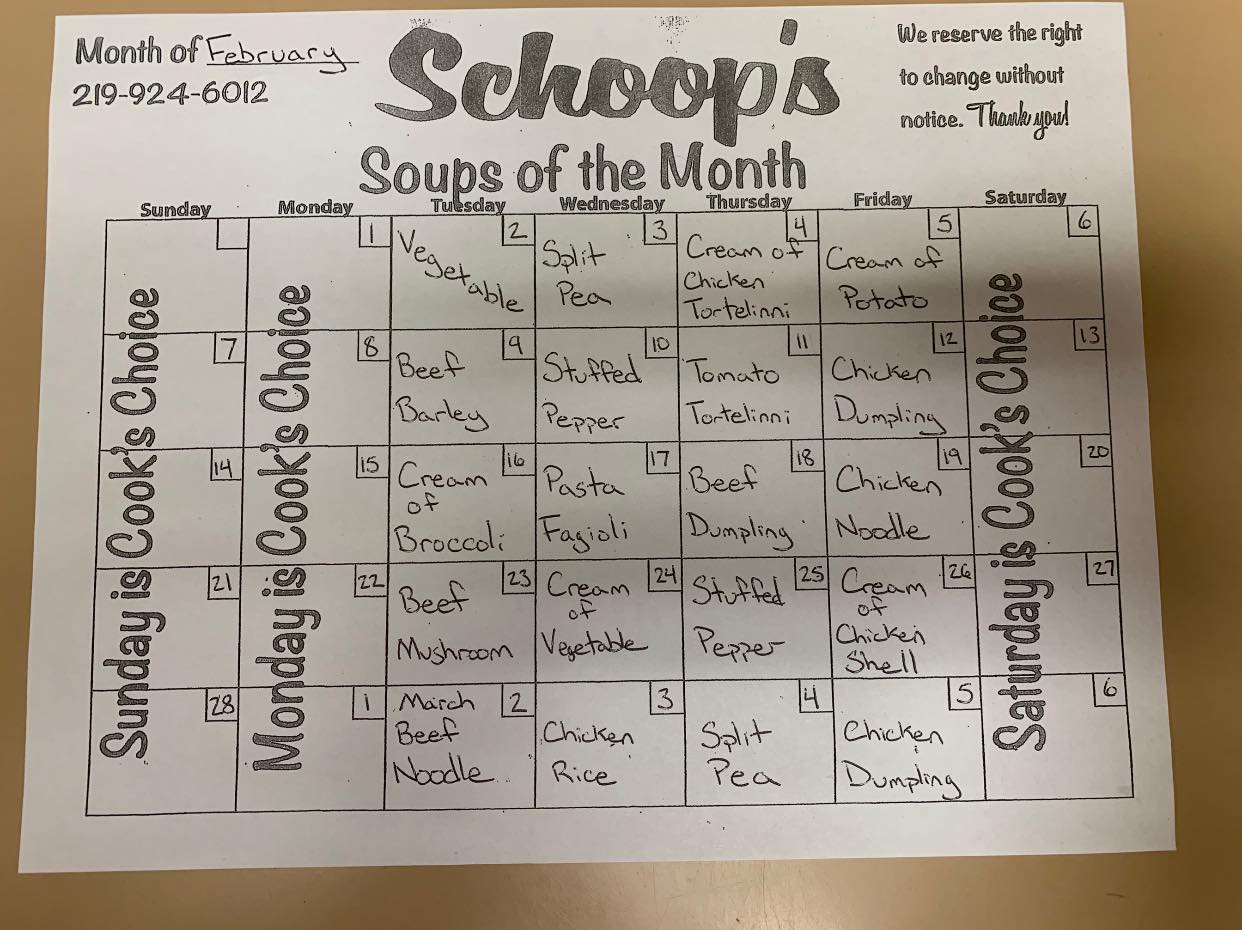 Month of February
219-924-6012
Schoop's
We reserve the right
to change without
notice. Thank you!
Soups of the Month
Sunday Monday Tuesday Wednesday Thursday Friday Saturday
Sunday is Cook's Choice
Monday is Cook's Choice
1
2
Vegetable
3
Split
Pea
4
Cream of
Chicken
Tortelinni
5
Cream of
Potato
6
Saturday is Cook's Choice
7
8
9
Beef
Barley
10
Stuffed
Pepper
11
Tomato
Tortelinni
12
Chicken
Dumpling
13
14
15
16
Cream
of
Broccoli
17
Pasta
Fagioli
18
Beef
Dumpling
19
Chicken
Noodle
20
21
22
23
Beef
Mushroom
24
Cream
of
Vegetable
25
Stuffed
Pepper
26
Cream
of
Chicken
Shell
27
28
1
March 2
Beef
Noodle
3
Chicken
Rice
4
Split
Pea
5
Chicken
Dumpling
6